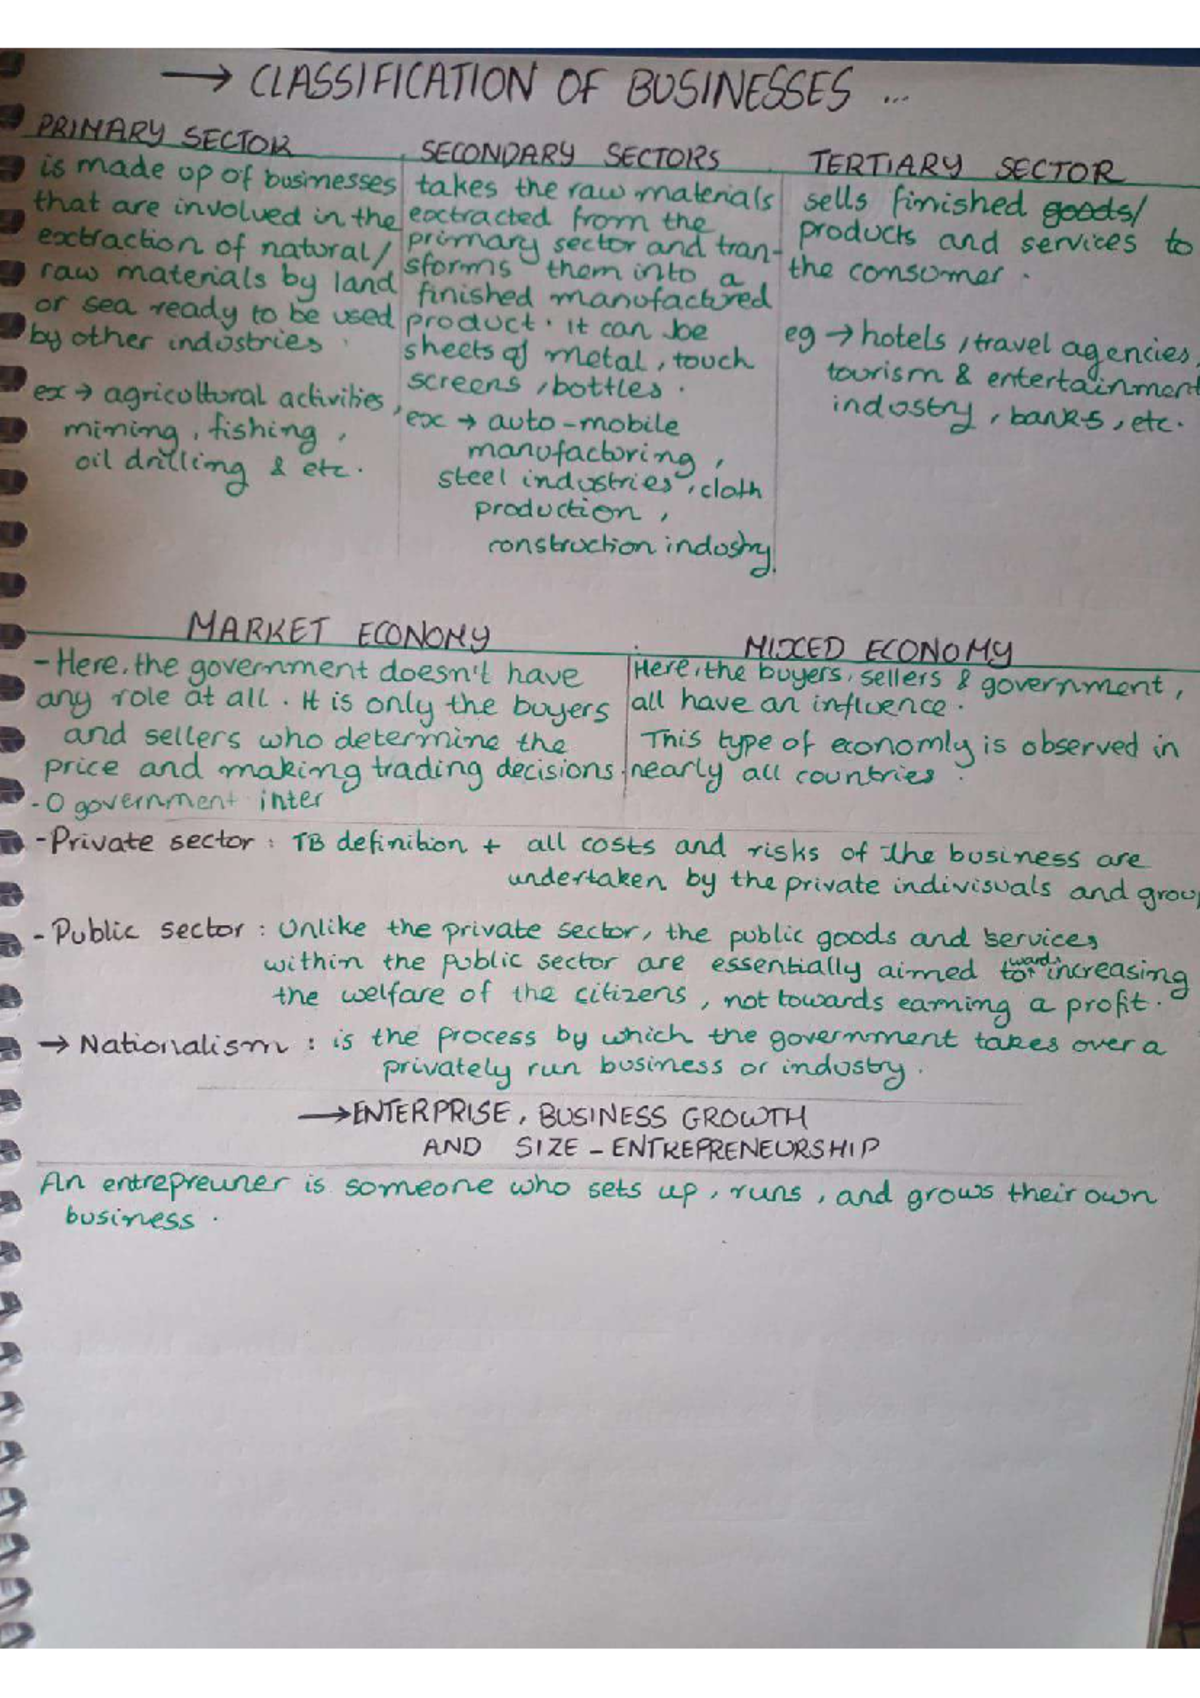 → CLASSIFICATION OF BUSINESSES ...
PRIMARY SECTOR
is made up of businesses
that are involved in the
extraction of natural/
raw materials by land
or sea ready to be used
by other industries.
ex → agricultural activities,
mining, fishing,
oil drilling & etc.
SECONDARY SECTORS
takes the raw materials
extracted from the
primary sector and tran-
sforms them into a
finished manufactured
product. it can be
sheets of metal, touch
screens, bottles.
ex → auto-mobile
manufacturing,
steel industries, cloth
production,
construction industry.
TERTIARY SECTOR
sells finished goods/
products and services to
the consumer.
eg → hotels, travel agencies,
tourism & entertainment
industry, banks, etc.
MARKET ECONOMY
- Here, the government doesn't have
any role at all. It is only the buyers
and sellers who determine the
price and making trading decisions.
- 0 government inter
MIXED ECONOMY
Here, the buyers, sellers & government,
all have an influence.
This type of economly is observed in
nearly all countries.
- Private sector: TB definition + all costs and risks of the business are
undertaken by the private indivisuals and group
- Public sector: Unlike the private sector, the public goods and services
within the public sector are essentially aimed towards increasing
the welfare of the citizens, not towards earning a profit.
→ Nationalism: is the process by which the government takes over a
privately run business or industry.
→ ENTERPRISE, BUSINESS GROWTH
AND SIZE - ENTREPRENEURSHIP
An entrepreuner is someone who sets up, runs, and grows their own
business.